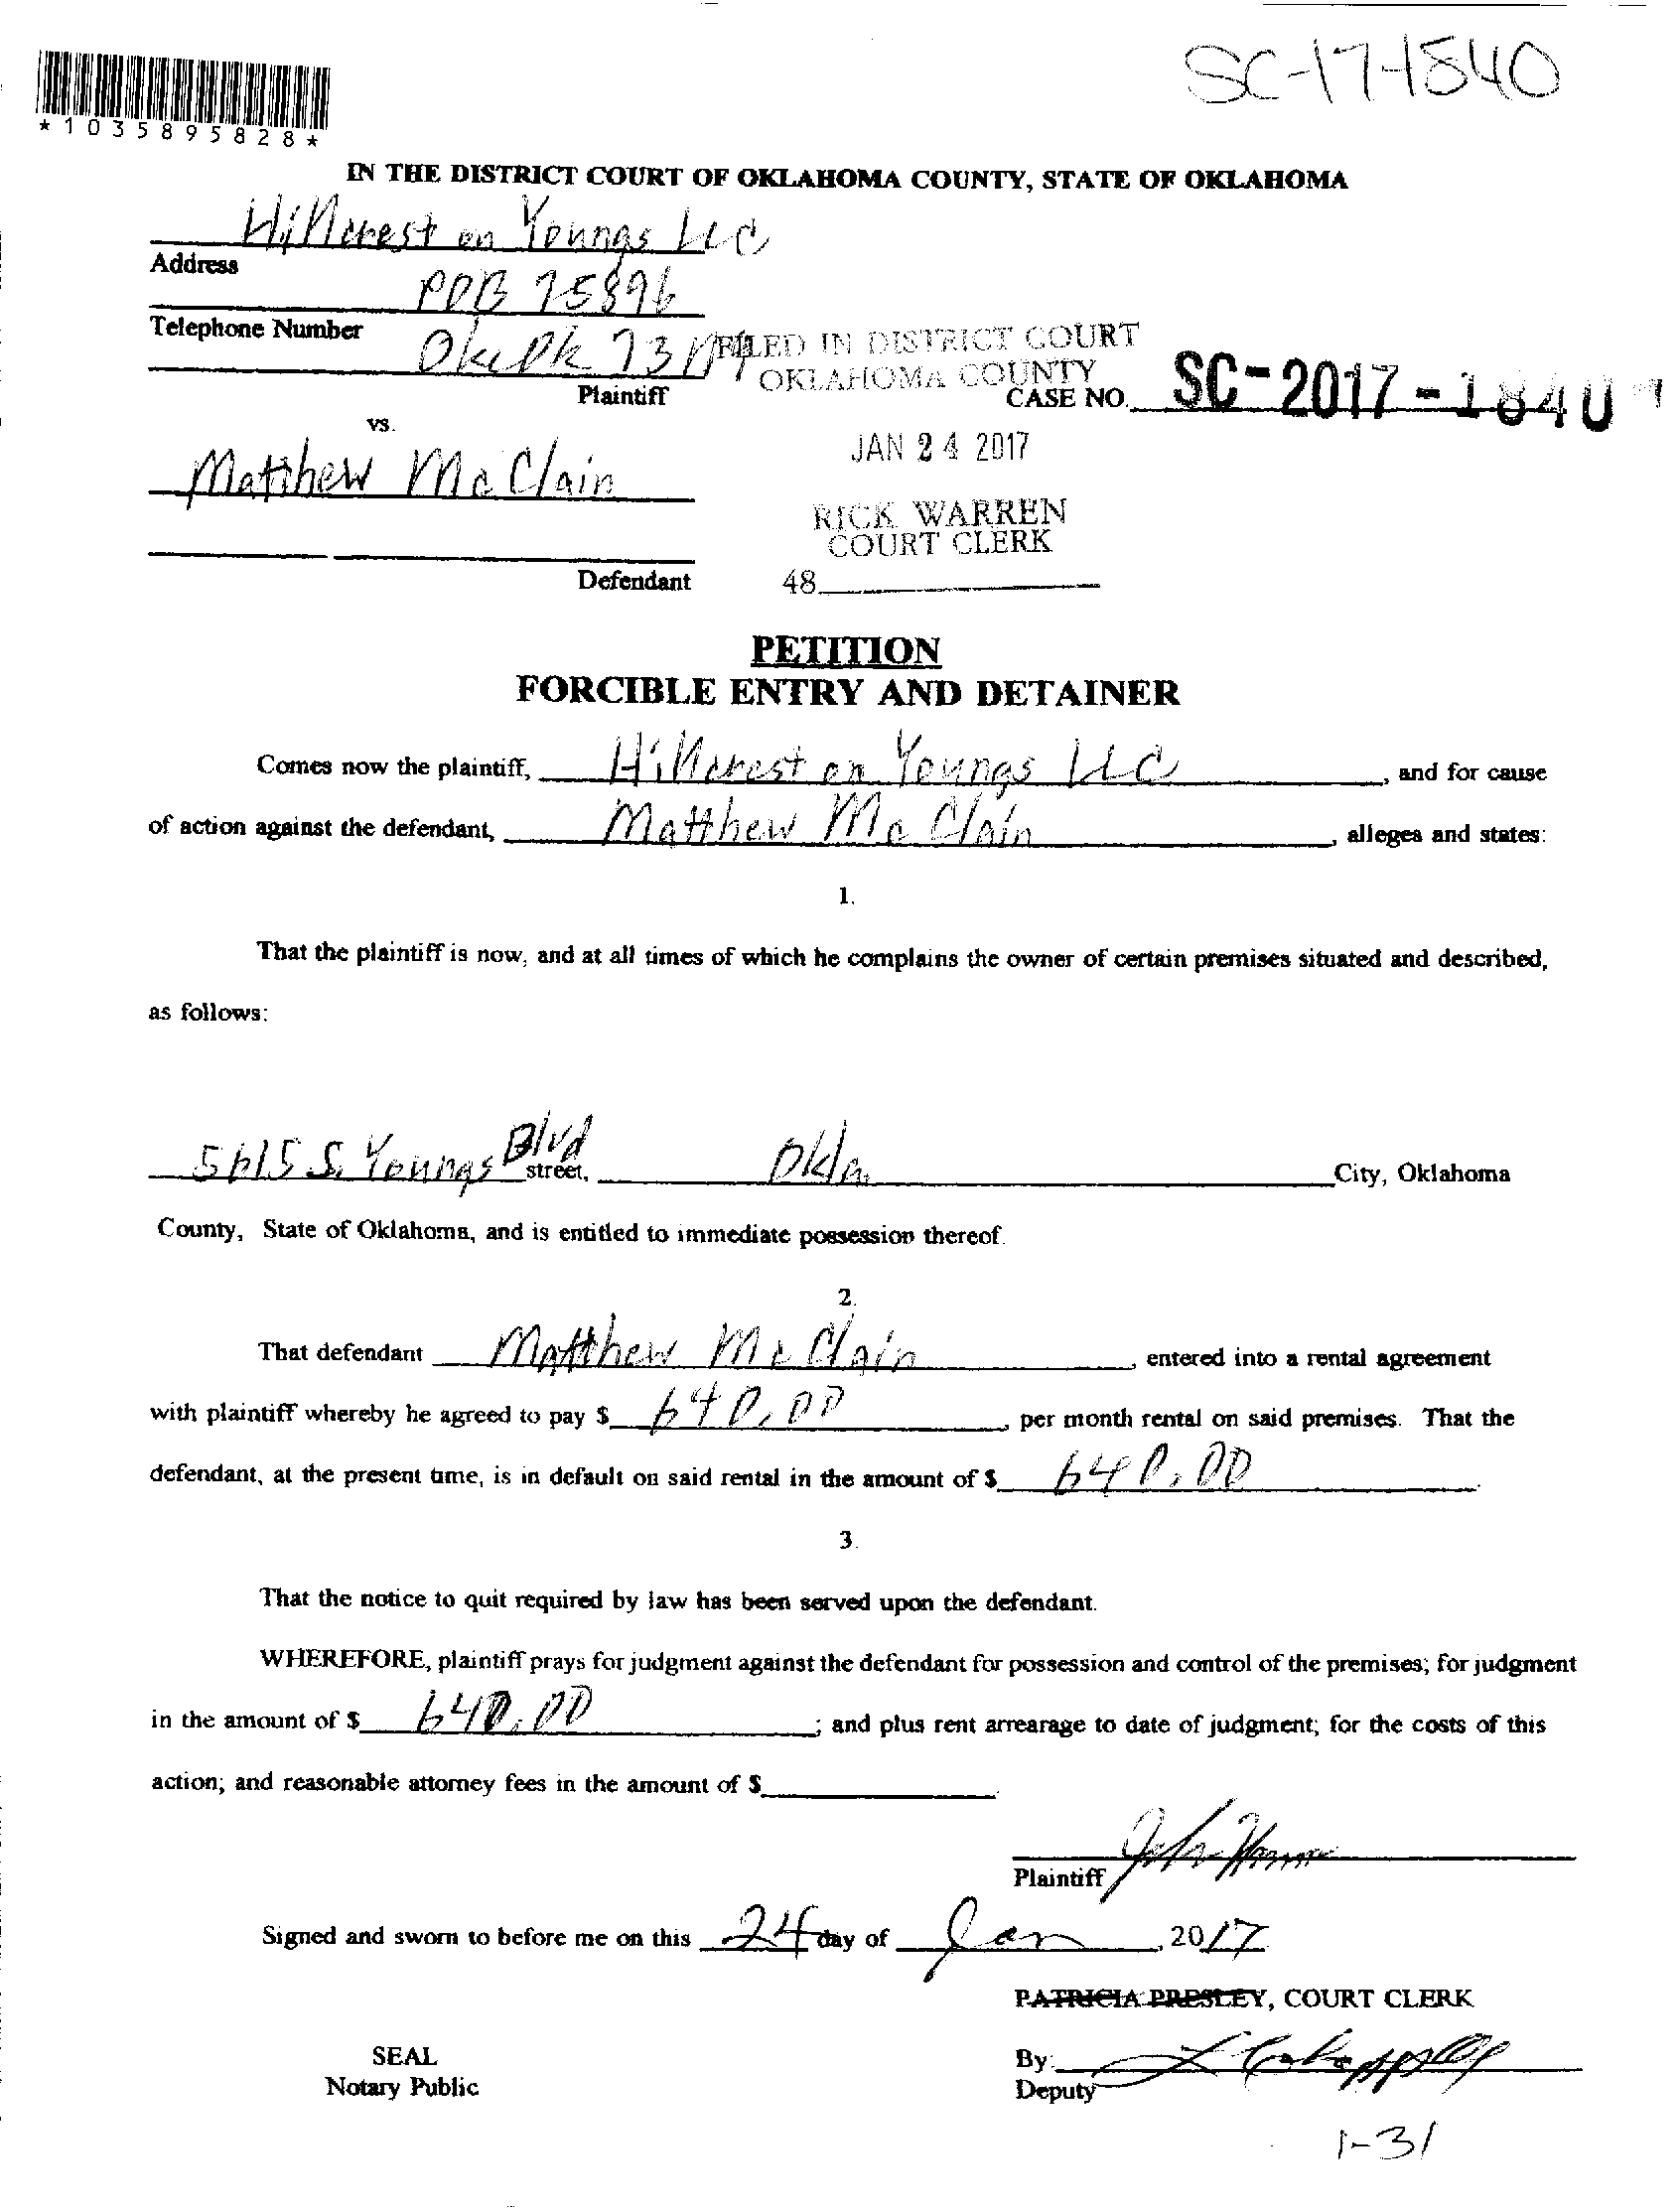 SC-17-1840
*1035895828*
IN THE DISTRICT COURT OF OKLAHOMA COUNTY, STATE OF OKLAHOMA
Hillcrest on Youngs LLC
Address
POB 75896
Telephone Number
FILED IN DISTRICT COURT
OKLAHOMA COUNTY
Plaintiff
CASE NO. SC-2017-1840
vs.
JAN 24 2017
Matthew McClain
RICK WARREN
COURT CLERK
Defendant
48
PETITION
FORCIBLE ENTRY AND DETAINER
Comes now the plaintiff, Hillcrest on Youngs LLC, and for cause
of action against the defendant, Matthew McClain, alleges and states:
1.
That the plaintiff is now, and at all times of which he complains the owner of certain premises situated and described,
as follows:
5615 S. Youngs Blvd street, Okla. City, Oklahoma
County, State of Oklahoma, and is entitled to immediate possession thereof.
2.
That defendant Matthew McClain, entered into a rental agreement
with plaintiff whereby he agreed to pay $ 640.00, per month rental on said premises. That the
defendant, at the present time, is in default on said rental in the amount of $ 640.00.
3.
That the notice to quit required by law has been served upon the defendant.
WHEREFORE, plaintiff prays for judgment against the defendant for possession and control of the premises; for judgment
in the amount of $ 640.00; and plus rent arrearage to date of judgment; for the costs of this
action; and reasonable attorney fees in the amount of $
Plaintiff
Signed and sworn to before me on this 24 day of Jan, 2017
PATRICIA PRESLEY, COURT CLERK
SEAL
Notary Public
By:
Deputy
1-31